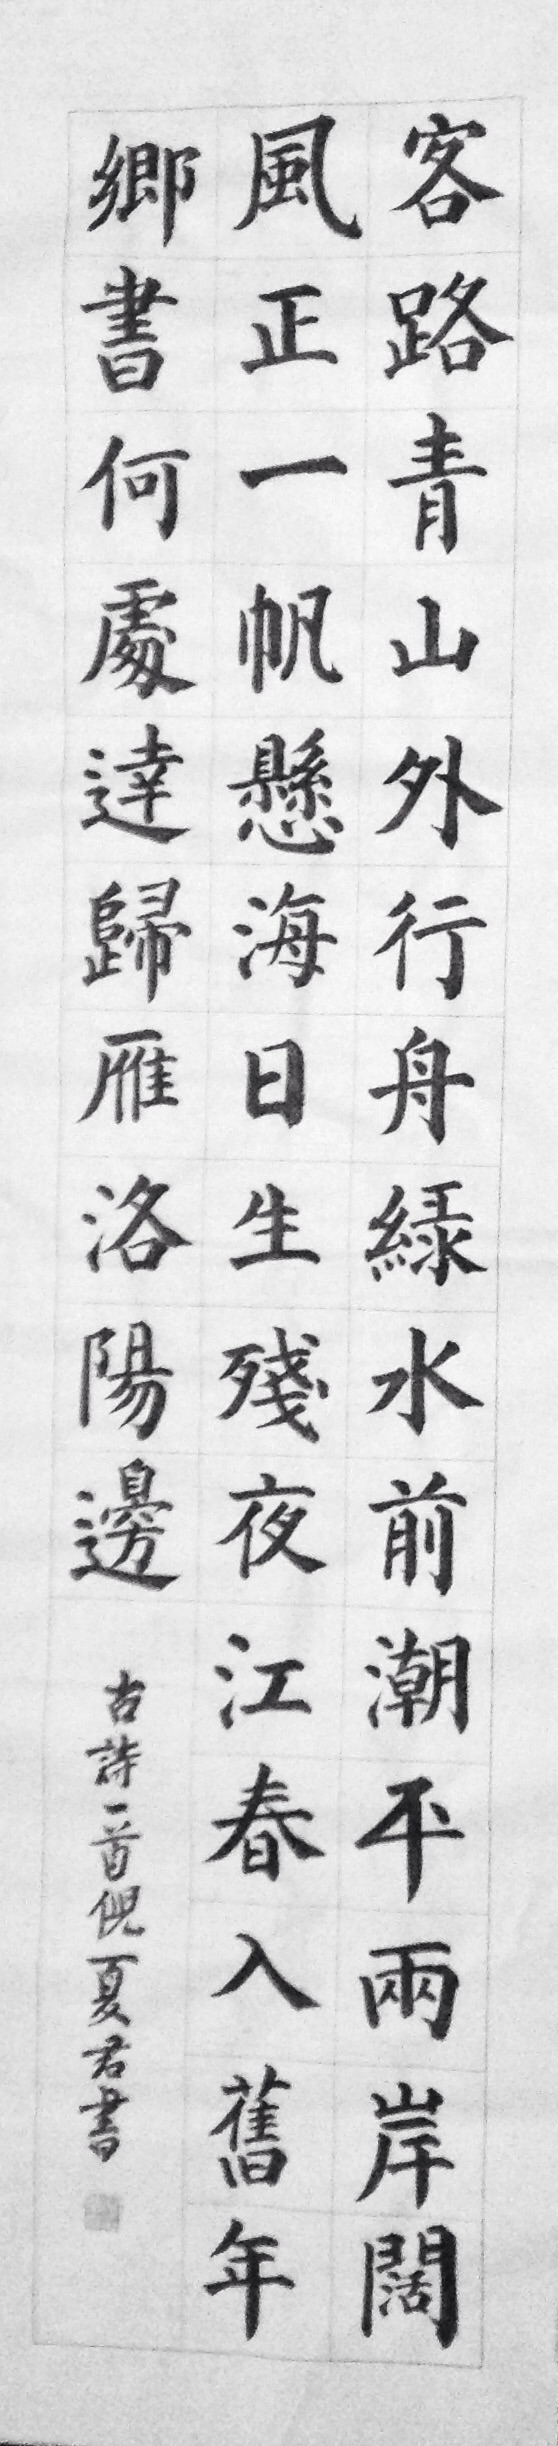 客路青山外行舟綠水前潮平兩岸闊
風正一帆懸海日生殘夜江春入舊年
鄉書何處達歸雁洛陽邊
古詩一首倪夏君書